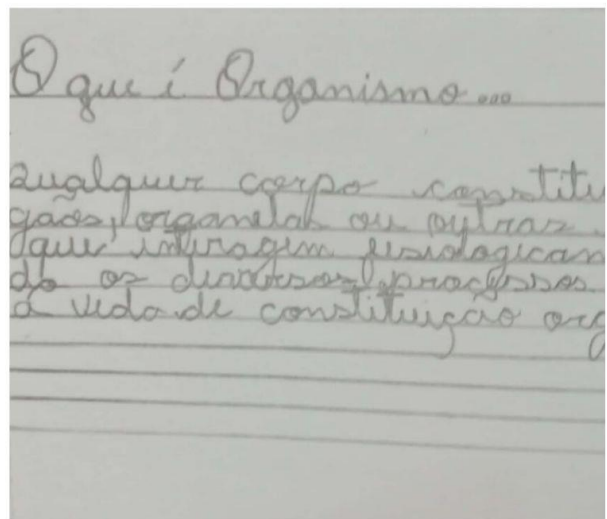 O que é Organismo...
qualquer corpo constitu
gãos, organelas ou outras
que interagem fisiologican
do os diversos processos
á vida de constituição org